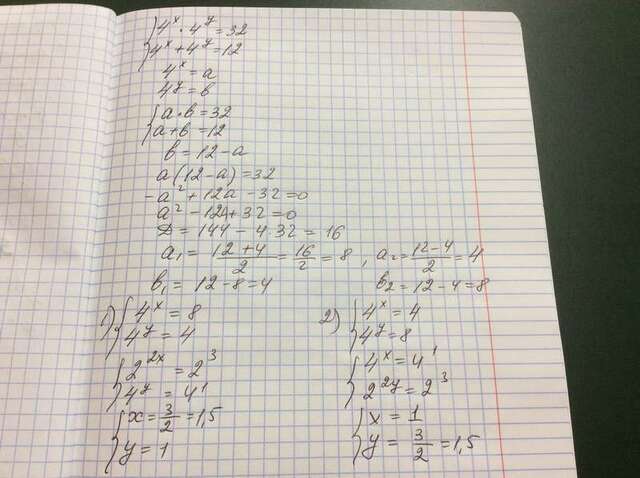 {4^x · 4^y = 32
{4^x + 4^y = 12
4^x = a
4^y = в
{a · в = 32
{a + в = 12
в = 12 - a
a(12 - a) = 32
-a² + 12a - 32 = 0
a² - 12a + 32 = 0
D = 144 - 4·32 = 16
a₁ = (12 + 4)/2 = 16/2 = 8 , a₂ = (12 - 4)/2 = 4
в₁ = 12 - 8 = 4 в₂ = 12 - 4 = 8
1) {4^x = 8
{4^y = 4
{2^2x = 2^3
{4^y = 4^1
{x = 3/2 = 1,5
{y = 1
2) {4^x = 4
{4^y = 8
{4^x = 4^1
{2^2y = 2^3
{x = 1
{y = 3/2 = 1,5